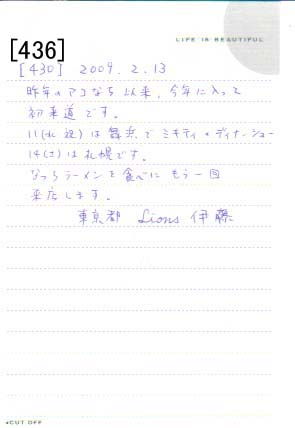 LIFE IS BEAUTIFUL
[436]
[430] 2009. 2. 13
昨年のアコなち以来、今年に入って
初来道です。
11(水祝)は舞浜でミキティのディナーショー
14(土)は札幌です。
なっちラーメンを食べに もう一回
来店します。
東京都 Lions 伊藤
◂CUT OFF